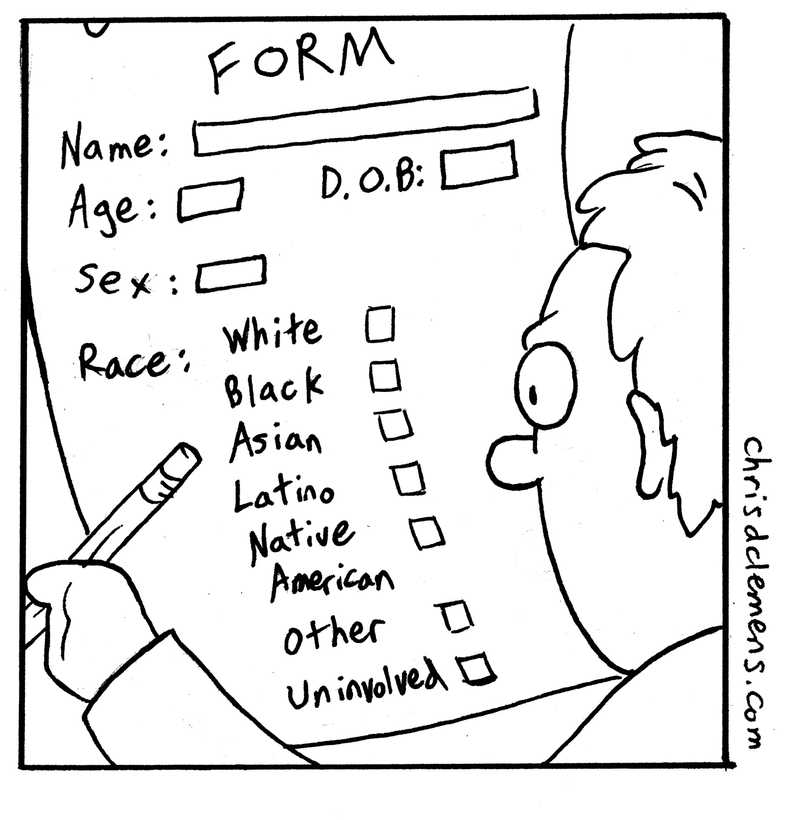 FORM
Name:
Age: D.O.B:
Sex:
Race: White
Black
Asian
Latino
Native
American
Other
Uninvolved
chrisdclemens.com